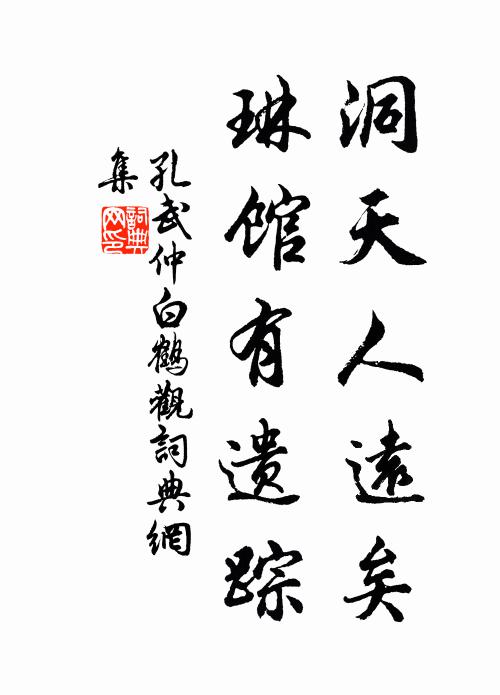 洞天人遠矣
琳館有遺踪
孔武仲白鶴觀詞典網
集
詞典網印